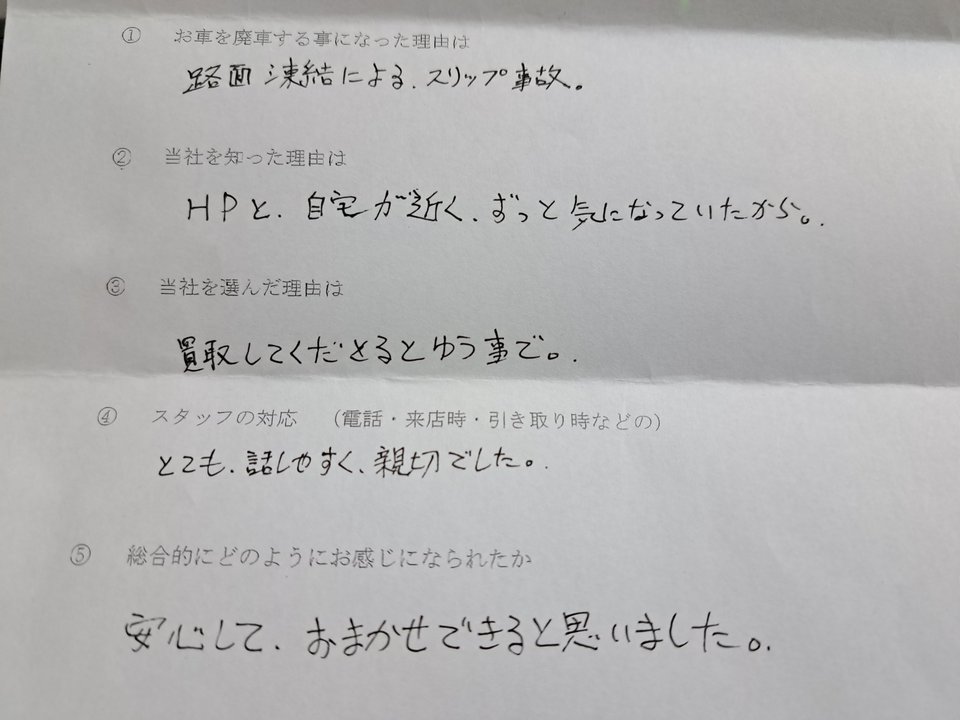 ① お車を廃車する事になった理由は
路面凍結による、スリップ事故。
② 当社を知った理由は
HPと、自宅が近く、ずっと気になっていたから。
③ 当社を選んだ理由は
買取してくださるとゆう事で。
④ スタッフの対応 (電話・来店時・引き取り時などの)
とても、話しやすく、親切でした。
⑤ 総合的にどのようにお感じになられたか
安心して、おまかせできると思いました。